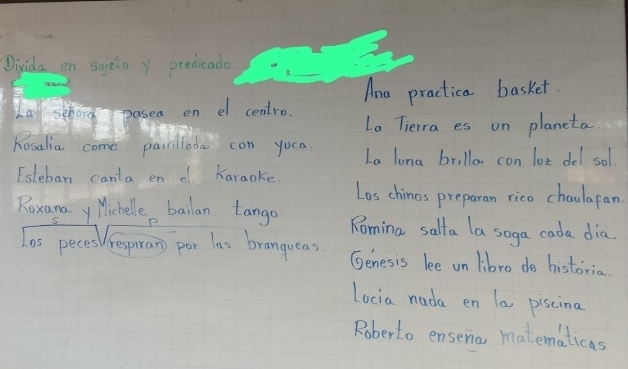 Divida en sujeto y predicado
La señora pasea en el centro.
Rosalia come parrillada con yuca.
Esteban canta en el Karaoke.
Roxana y Michelle bailan tango
S P
Los peces respiran por las branqueas.
Ana practica basket.
La Tierra es un planeta.
La luna brilla con luz del sol.
Los chinos preparan rico chaulafan.
Romina salta la soga cada dia.
Génesis lee un libro de história.
Lucia nada en la piscina
Roberto enseña matemáticas